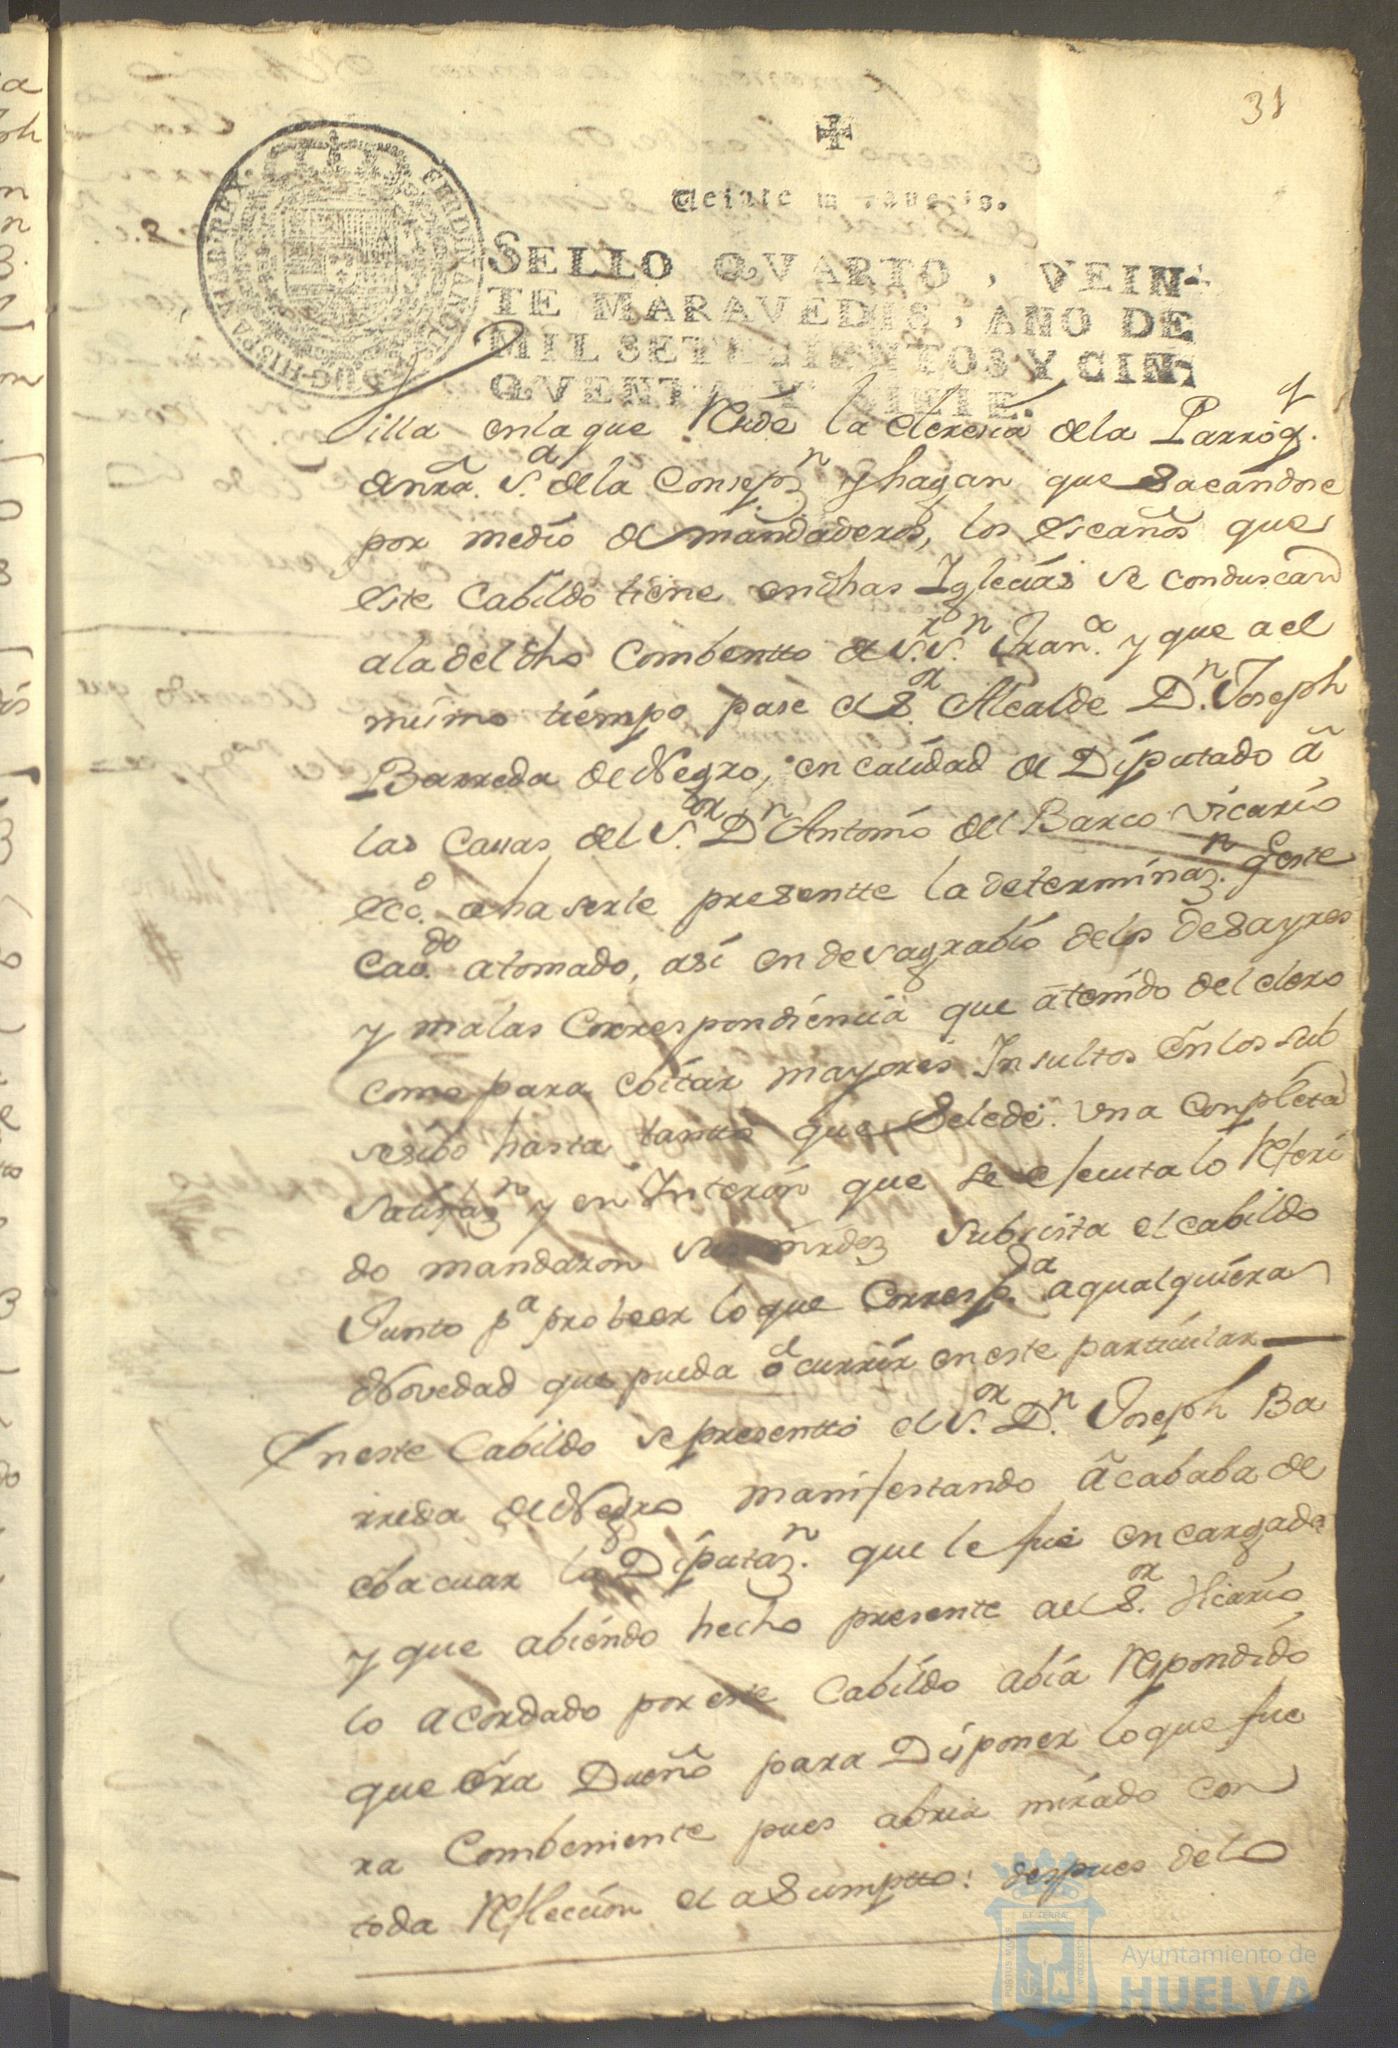 31
Veinte maravedis.
SELLO QVARTO, VEIN-
TE MARAVEDIS, AÑO DE
MIL SETECIENTOS Y CIN-
QVENTA Y SIETE.
villa en la que Reside la cleresia de la Parroq.
de nra. S.a de la Consepn y hagan que sacandose
por medio de mandaderos, los escaños que
este Cabildo tiene en dhas Iglecias se conduscan
a la del dho Combentto de S.r S.n Fran.co y que a el
mismo tiempo pase el S.or Alcalde D.n Joseph
Barreda de Negro, en calidad de Diputado â
las Casas del S.or D.n Antonio del Barco Vicario
ecc.o a haserle presentte la determinaz.n q este
Cav.do a tomado, asi en desagrabio de los desayres
y malas Correspondiencia que â tenido del clero
como para ebitar mayores Insultos en los sub
sesibo hasta tantto que se le de una Conpleta
satisfaz.n y en Interin que se ejecuta lo Referi
do mandaron sus mrdez Subsista el cabildo
Junto p.a probeer lo que Corresp.da a qualquiera
Novedad que pueda ocurrir en este particular
En este Cabildo se presentto el S.or D.n Joseph Ba
rreda de Negro manifestando âcababa de
ebacuar la Diputaz.n que le fue encargada
y que abiendo hecho presente a el S.or Vicario
lo acordado por este Cabildo abia Respondido
que era Dueño para Disponer lo que fue
ra Combeniente pues abria mirado con
toda Reflección el asumptto: despues de lo
Ayuntamiento de
HUELVA